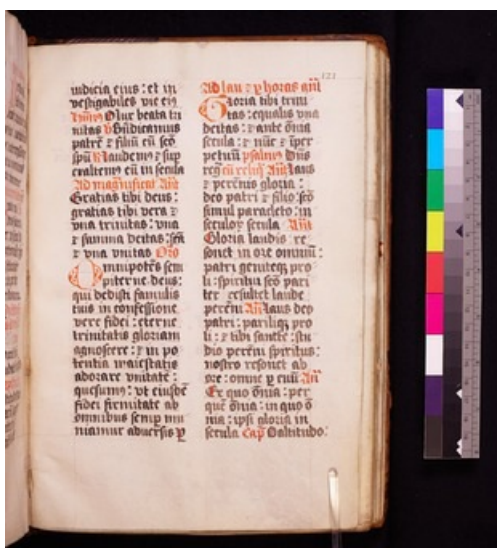 121
iudicia eius : et in
vestigabiles vie eiꝰ
Hymnꝰ O lux beata tri
nitas ꝟ Bn̄dicamus
patrē ⁊ filiū cū scō
spū R Laudemꝰ ⁊ sup
exaltemꝰ eū in secula
Ad magnificat Añ
Gratias tibi deus :
gratias tibi vera ⁊
vna trinitas : vna
⁊ summa deitas : scā
⁊ vna vnitas Oro
Omnipotēs sem
piterne deus :
qui dedisti famulis
tuis in confessione
vere fidei : eterne
trinitatis gloriam
agnoscere : ⁊ in po
tentia maiestatis
adorare vnitatē :
quesumꝰ : vt eiusdē
fidei firmitate ab
omnibus semp mu
niamur aduersis ꝑ
Ad lau ⁊ ꝑ horas añ
Gloria tibi trini
tas : equalis vna
deitas : ⁊ ante ōnia
secula : ⁊ nūc ⁊ īper
petuū psalmꝰ Dn̄s
reḡ cū reliq̄ Añ Laus
⁊ perēnis gloria :
deo patri ⁊ filio : scō
simul paracleto : in
seculoꝝ secula Añ
Gloria laudis re
sonet in ore omniū :
patri geniteqꝫ pro
li : spiritui scō pari
ter resultet laude
perēni Añ Laus deo
patri : pariliqꝫ pro
li : ⁊ tibi sancte : stu
dio perēni spiritus :
nostro resonet ab
ore : omne ꝑ euū Añ
Ex quo ōnia : per
quē ōnia : in quo ō
nia : ipsi gloria in
secula Cap̄ O altitudo.